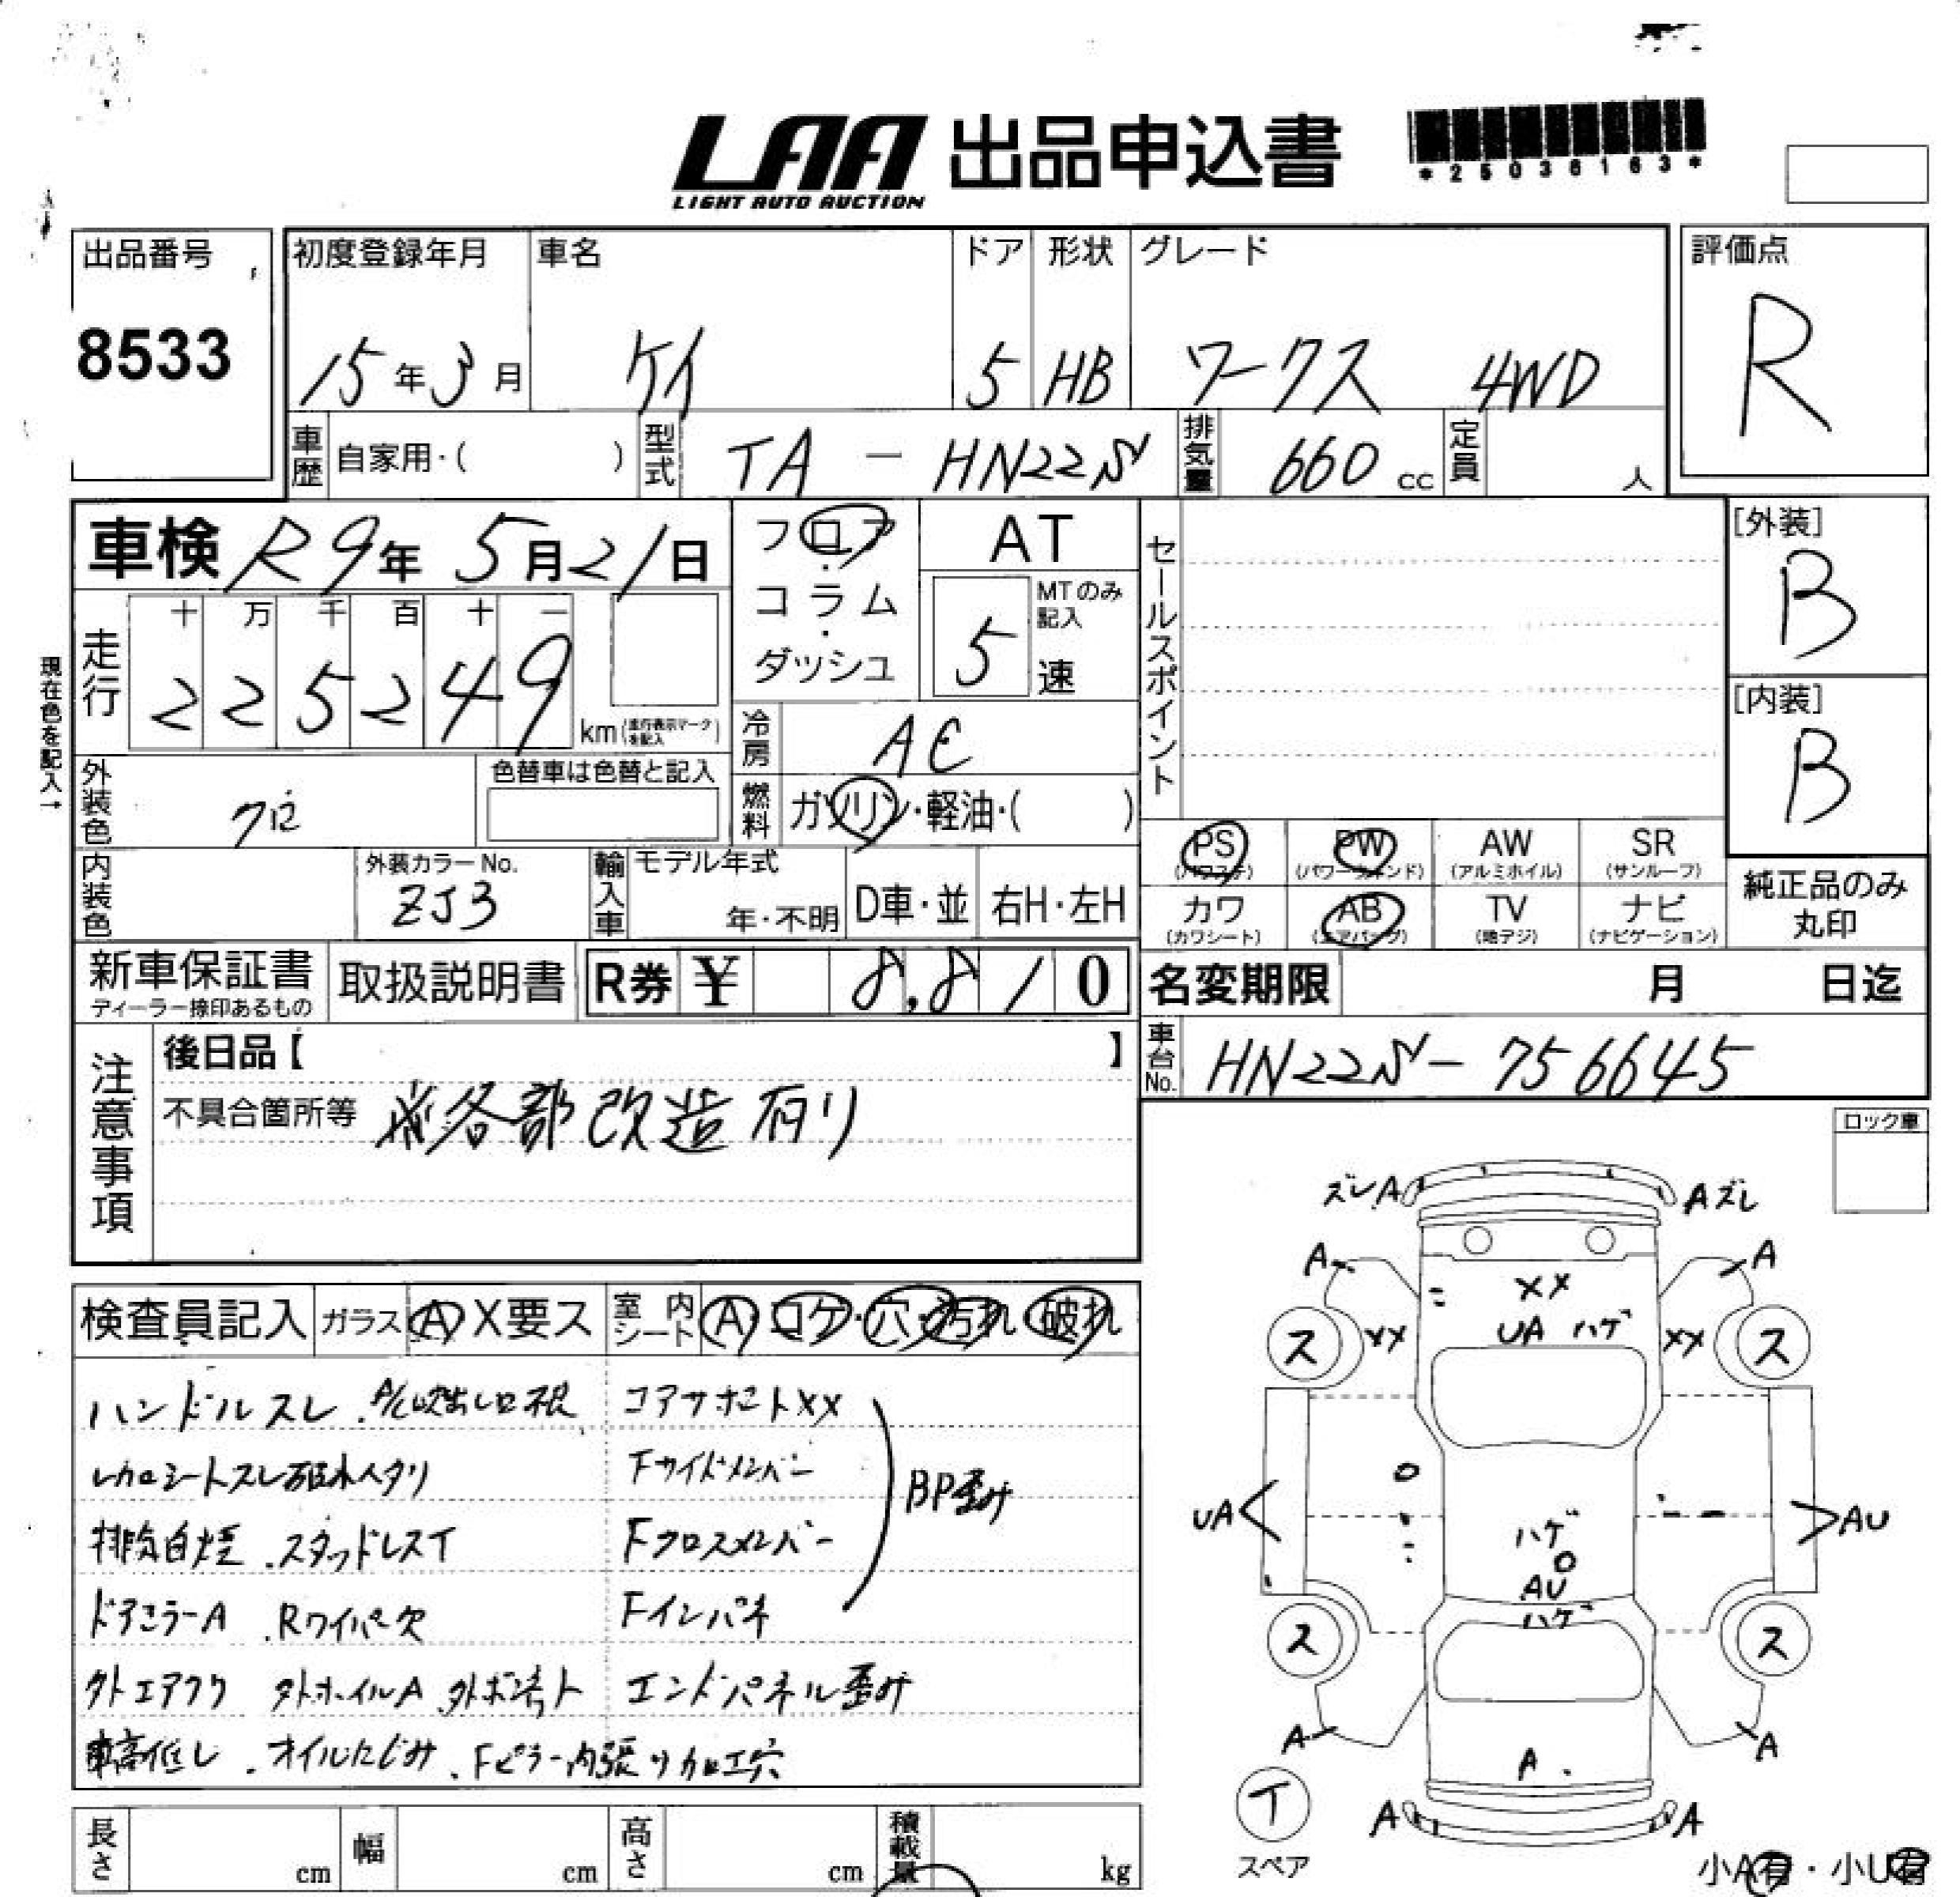 LAA 出品申込書
LIGHT AUTO AUCTION
*25036163*
出品番号
8533
初度登録年月 車名 ドア 形状 グレード
15年3月 ケイ 5 HB ワークス 4WD
評価点
R
車歴 自家用・( ) 型式 TA - HN22S 排気量 660 cc 定員 人
車検 R9年 5月21日
フロア・コラム・ダッシュ
AT
MTのみ記入
5 速
セールスポイント
[外装]
B
[内装]
B
現在色を記入→
走行 十 万 千 百 十 一
225249 km (走行表示マークを記入)
冷房 AC
外装色 クロ
色替車は色替と記入
燃料 ガソリン・軽油・( )
PS (パワステ) PW (パワーウィンド) AW (アルミホイル) SR (サンルーフ)
カワ (カワシート) AB (エアバッグ) TV (地デジ) ナビ (ナビゲーション)
純正品のみ丸印
内装色
外装カラーNo.
ZJ3
輸入車 モデル年式
年・不明 D車・並 右H・左H
新車保証書
ディーラー捺印あるもの
取扱説明書 R券 ¥ 8,810
名変期限 月 日迄
車台No. HN22S-756645
注意事項
後日品【 】
不具合箇所等 ※各部改造有り
ロック車
検査員記入 ガラス A X要ス 室内シート A・コゲ・穴・汚れ・破れ
ハンドルスレ .A/C吹出し口不良 コアサポートXX
レカロシートスレ破れヘタリ Fサイドメンバー
BP歪み
排気白煙 .スタッドレスT Fクロスメンバー
ドアミラーA .Rワイパー欠 Fインパネ
外エアクリ 外ホイルA 外ボンネット エンドパネル歪み
車高低し .オイルにじみ .Fピラー内張り加工穴
ズレA Aズレ
A A
XX
ス XX UA ハゲ XX ス
UA ハゲ AU
AU
ハゲ
ス ス
A A A
T
スペア
A A
長さ cm 幅 cm 高さ cm 積載量 kg
小A有・小U有